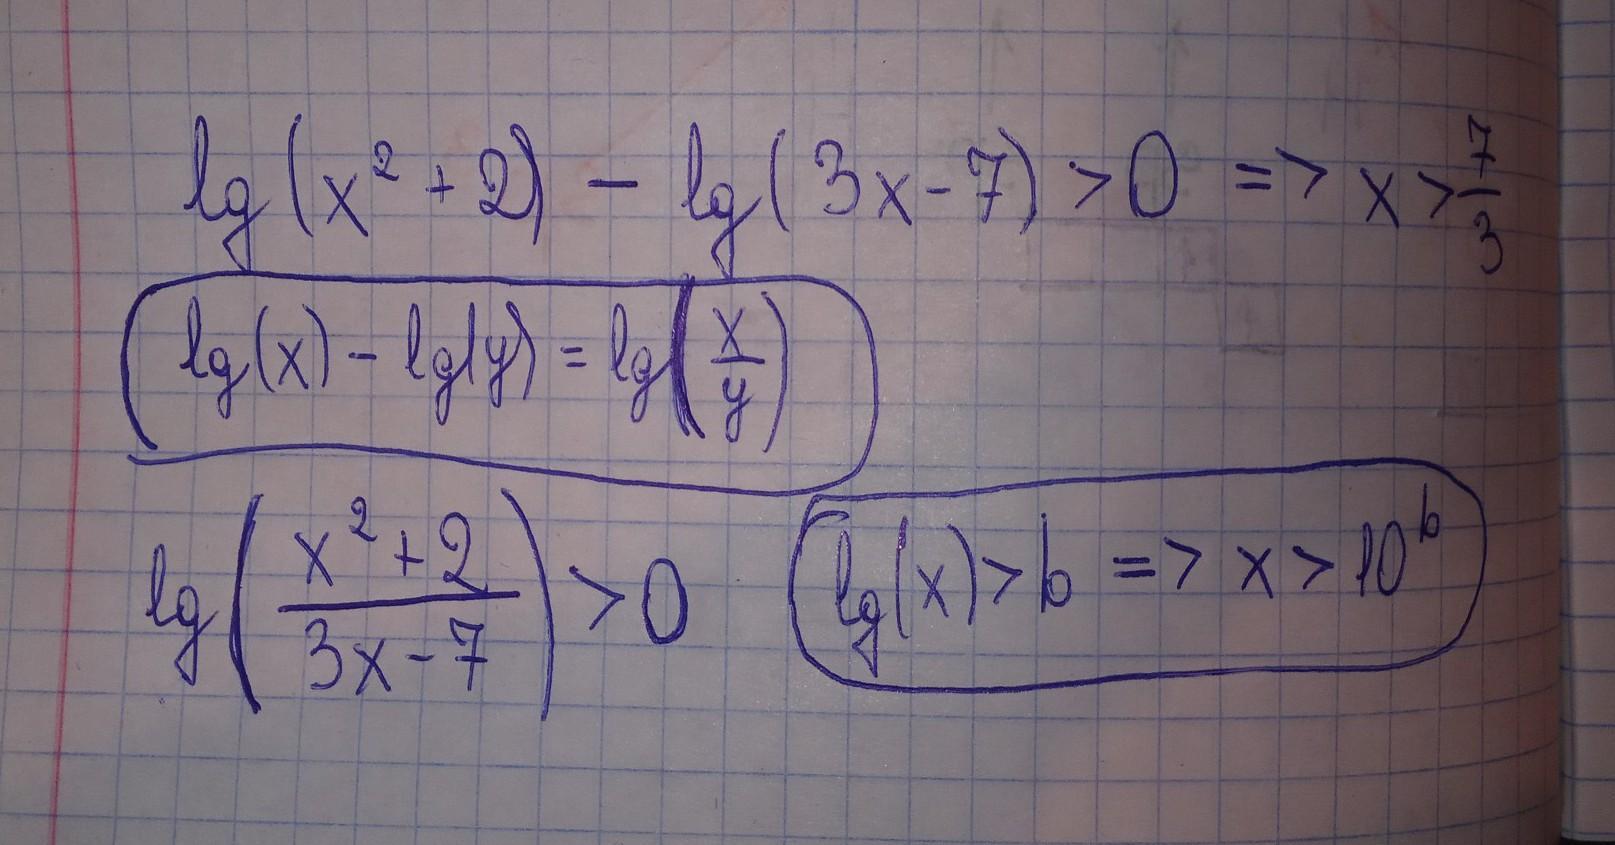 lg(x² + 2) - lg(3x - 7) > 0 => x > 7/3
lg(x) - lg(y) = lg(x/y)
lg((x² + 2)/(3x - 7)) > 0
lg(x) > b => x > 10ᵇ